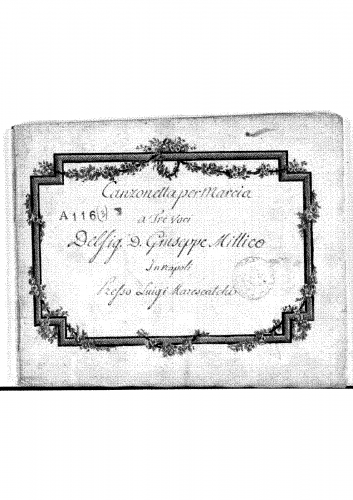 Canzonetta per Marcia
A 116
a Tre Voci
Del Sig. D. Giuseppe Millico
In Napoli
Presso Luigi Marescalchi